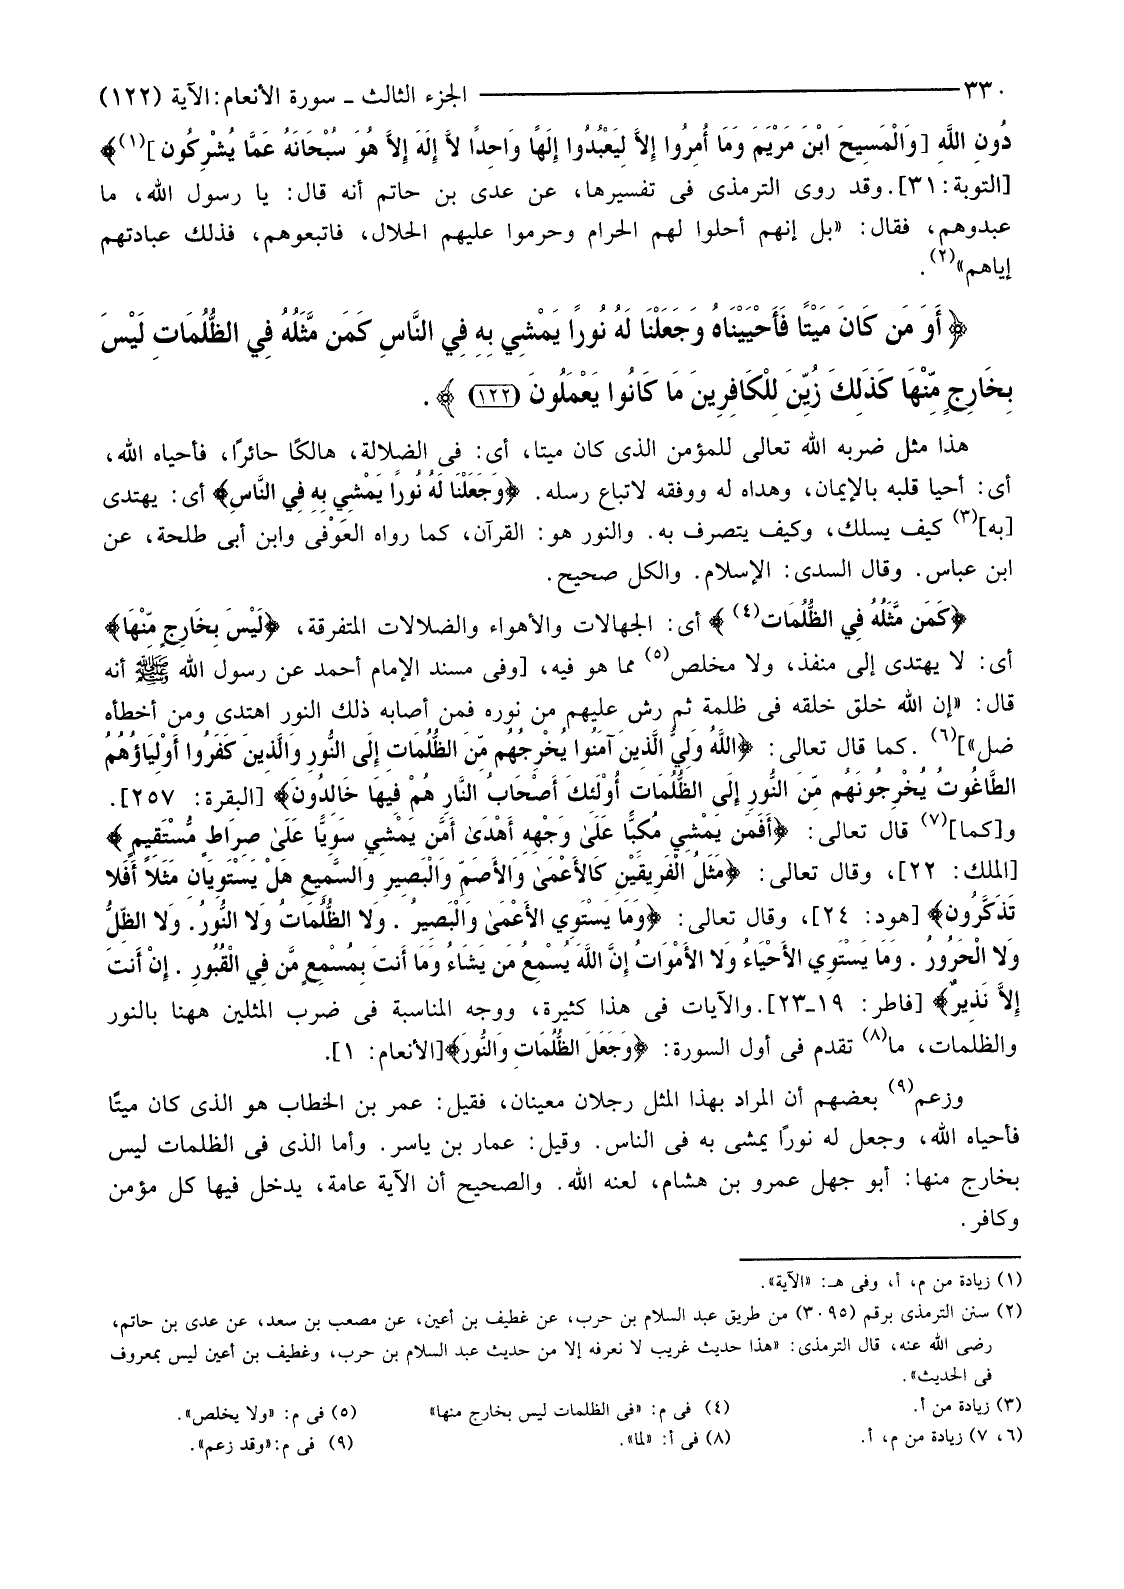 ٣٣٠ الجزء الثالث ـ سورة الأنعام: الآية (١٢٢)
دُونِ اللَّهِ [وَالْمَسِيحَ ابْنَ مَرْيَمَ وَمَا أُمِرُوا إِلاَّ لِيَعْبُدُوا إِلَهًا وَاحِدًا لاَّ إِلَهَ إِلاَّ هُوَ سُبْحَانَهُ عَمَّا يُشْرِكُون](١)﴾
[التوبة: ٣١]. وقد روى الترمذى فى تفسيرها، عن عدى بن حاتم أنه قال: يا رسول الله، ما
عبدوهم، فقال: «بل إنهم أحلوا لهم الحرام وحرموا عليهم الحلال، فاتبعوهم، فذلك عبادتهم
إياهم»(٢).
﴿أَوَ مَن كَانَ مَيْتًا فَأَحْيَيْنَاهُ وَجَعَلْنَا لَهُ نُورًا يَمْشِي بِهِ فِي النَّاسِ كَمَن مَّثَلُهُ فِي الظُّلُمَاتِ لَيْسَ
بِخَارِجٍ مِّنْهَا كَذَلِكَ زُيِّنَ لِلْكَافِرِينَ مَا كَانُوا يَعْمَلُونَ (١٢٢)﴾.
هذا مثل ضربه الله تعالى للمؤمن الذى كان ميتا، أى: فى الضلالة، هالكًا حائرًا، فأحياه الله،
أى: أحيا قلبه بالإيمان، وهداه له ووفقه لاتباع رسله. ﴿وَجَعَلْنَا لَهُ نُورًا يَمْشِي بِهِ فِي النَّاسِ﴾ أى: يهتدى
[به](٣) كيف يسلك، وكيف يتصرف به. والنور هو: القرآن، كما رواه العَوْفى وابن أبى طلحة، عن
ابن عباس. وقال السدى: الإسلام. والكل صحيح.
﴿كَمَن مَّثَلُهُ فِي الظُّلُمَات(٤)﴾ أى: الجهالات والأهواء والضلالات المتفرقة، ﴿لَيْسَ بِخَارِجٍ مِّنْهَا﴾
أى: لا يهتدى إلى منفذ، ولا مخلص(٥) مما هو فيه، [وفى مسند الإمام أحمد عن رسول الله ﷺ أنه
قال: «إن الله خلق خلقه فى ظلمة ثم رش عليهم من نوره فمن أصابه ذلك النور اهتدى ومن أخطأه
ضل»](٦). كما قال تعالى: ﴿اللَّهُ وَلِيُّ الَّذِينَ آمَنُوا يُخْرِجُهُم مِّنَ الظُّلُمَاتِ إِلَى النُّورِ وَالَّذِينَ كَفَرُوا أَوْلِيَاؤُهُمُ
الطَّاغُوتُ يُخْرِجُونَهُم مِّنَ النُّورِ إِلَى الظُّلُمَاتِ أُوْلَئِكَ أَصْحَابُ النَّارِ هُمْ فِيهَا خَالِدُونَ﴾ [البقرة: ٢٥٧].
و[كما](٧) قال تعالى: ﴿أَفَمَن يَمْشِي مُكِبًّا عَلَىٰ وَجْهِهِ أَهْدَىٰ أَمَّن يَمْشِي سَوِيًّا عَلَىٰ صِرَاطٍ مُّسْتَقِيمٍ﴾
[الملك: ٢٢]، وقال تعالى: ﴿مَثَلُ الْفَرِيقَيْنِ كَالأَعْمَىٰ وَالأَصَمِّ وَالْبَصِيرِ وَالسَّمِيعِ هَلْ يَسْتَوِيَانِ مَثَلاً أَفَلا
تَذَكَّرُون﴾ [هود: ٢٤]، وقال تعالى: ﴿وَمَا يَسْتَوِي الأَعْمَىٰ وَالْبَصِيرُ. وَلا الظُّلُمَاتُ وَلا النُّورُ. وَلا الظِّلُّ
وَلا الْحَرُورُ. وَمَا يَسْتَوِي الأَحْيَاءُ وَلا الأَمْوَاتُ إِنَّ اللَّهَ يُسْمِعُ مَن يَشَاءُ وَمَا أَنتَ بِمُسْمِعٍ مَّن فِي الْقُبُورِ. إِنْ أَنتَ
إِلاَّ نَذِيرٌ﴾ [فاطر: ١٩ـ٢٣]. والآيات فى هذا كثيرة، ووجه المناسبة فى ضرب المثلين ههنا بالنور
والظلمات، ما(٨) تقدم فى أول السورة: ﴿وَجَعَلَ الظُّلُمَاتِ وَالنُّورَ﴾[الأنعام: ١].
وزعم(٩) بعضهم أن المراد بهذا المثل رجلان معينان، فقيل: عمر بن الخطاب هو الذى كان ميتًا
فأحياه الله، وجعل له نورًا يمشى به فى الناس. وقيل: عمار بن ياسر. وأما الذى فى الظلمات ليس
بخارج منها: أبو جهل عمرو بن هشام، لعنه الله. والصحيح أن الآية عامة، يدخل فيها كل مؤمن
وكافر.
(١) زيادة من م، أ، وفى هـ: «الآية».
(٢) سنن الترمذى برقم (٣٠٩٥) من طريق عبد السلام بن حرب، عن غطيف بن أعين، عن مصعب بن سعد، عن عدى بن حاتم،
رضى الله عنه، قال الترمذى: «هذا حديث غريب لا نعرفه إلا من حديث عبد السلام بن حرب، وغطيف بن أعين ليس بمعروف
فى الحديث».
(٣) زيادة من أ. (٤) فى م: «فى الظلمات ليس بخارج منها» (٥) فى م: «ولا يخلص».
(٦، ٧) زيادة من م، أ. (٨) فى أ: «لما». (٩) فى م: «وقد زعم».